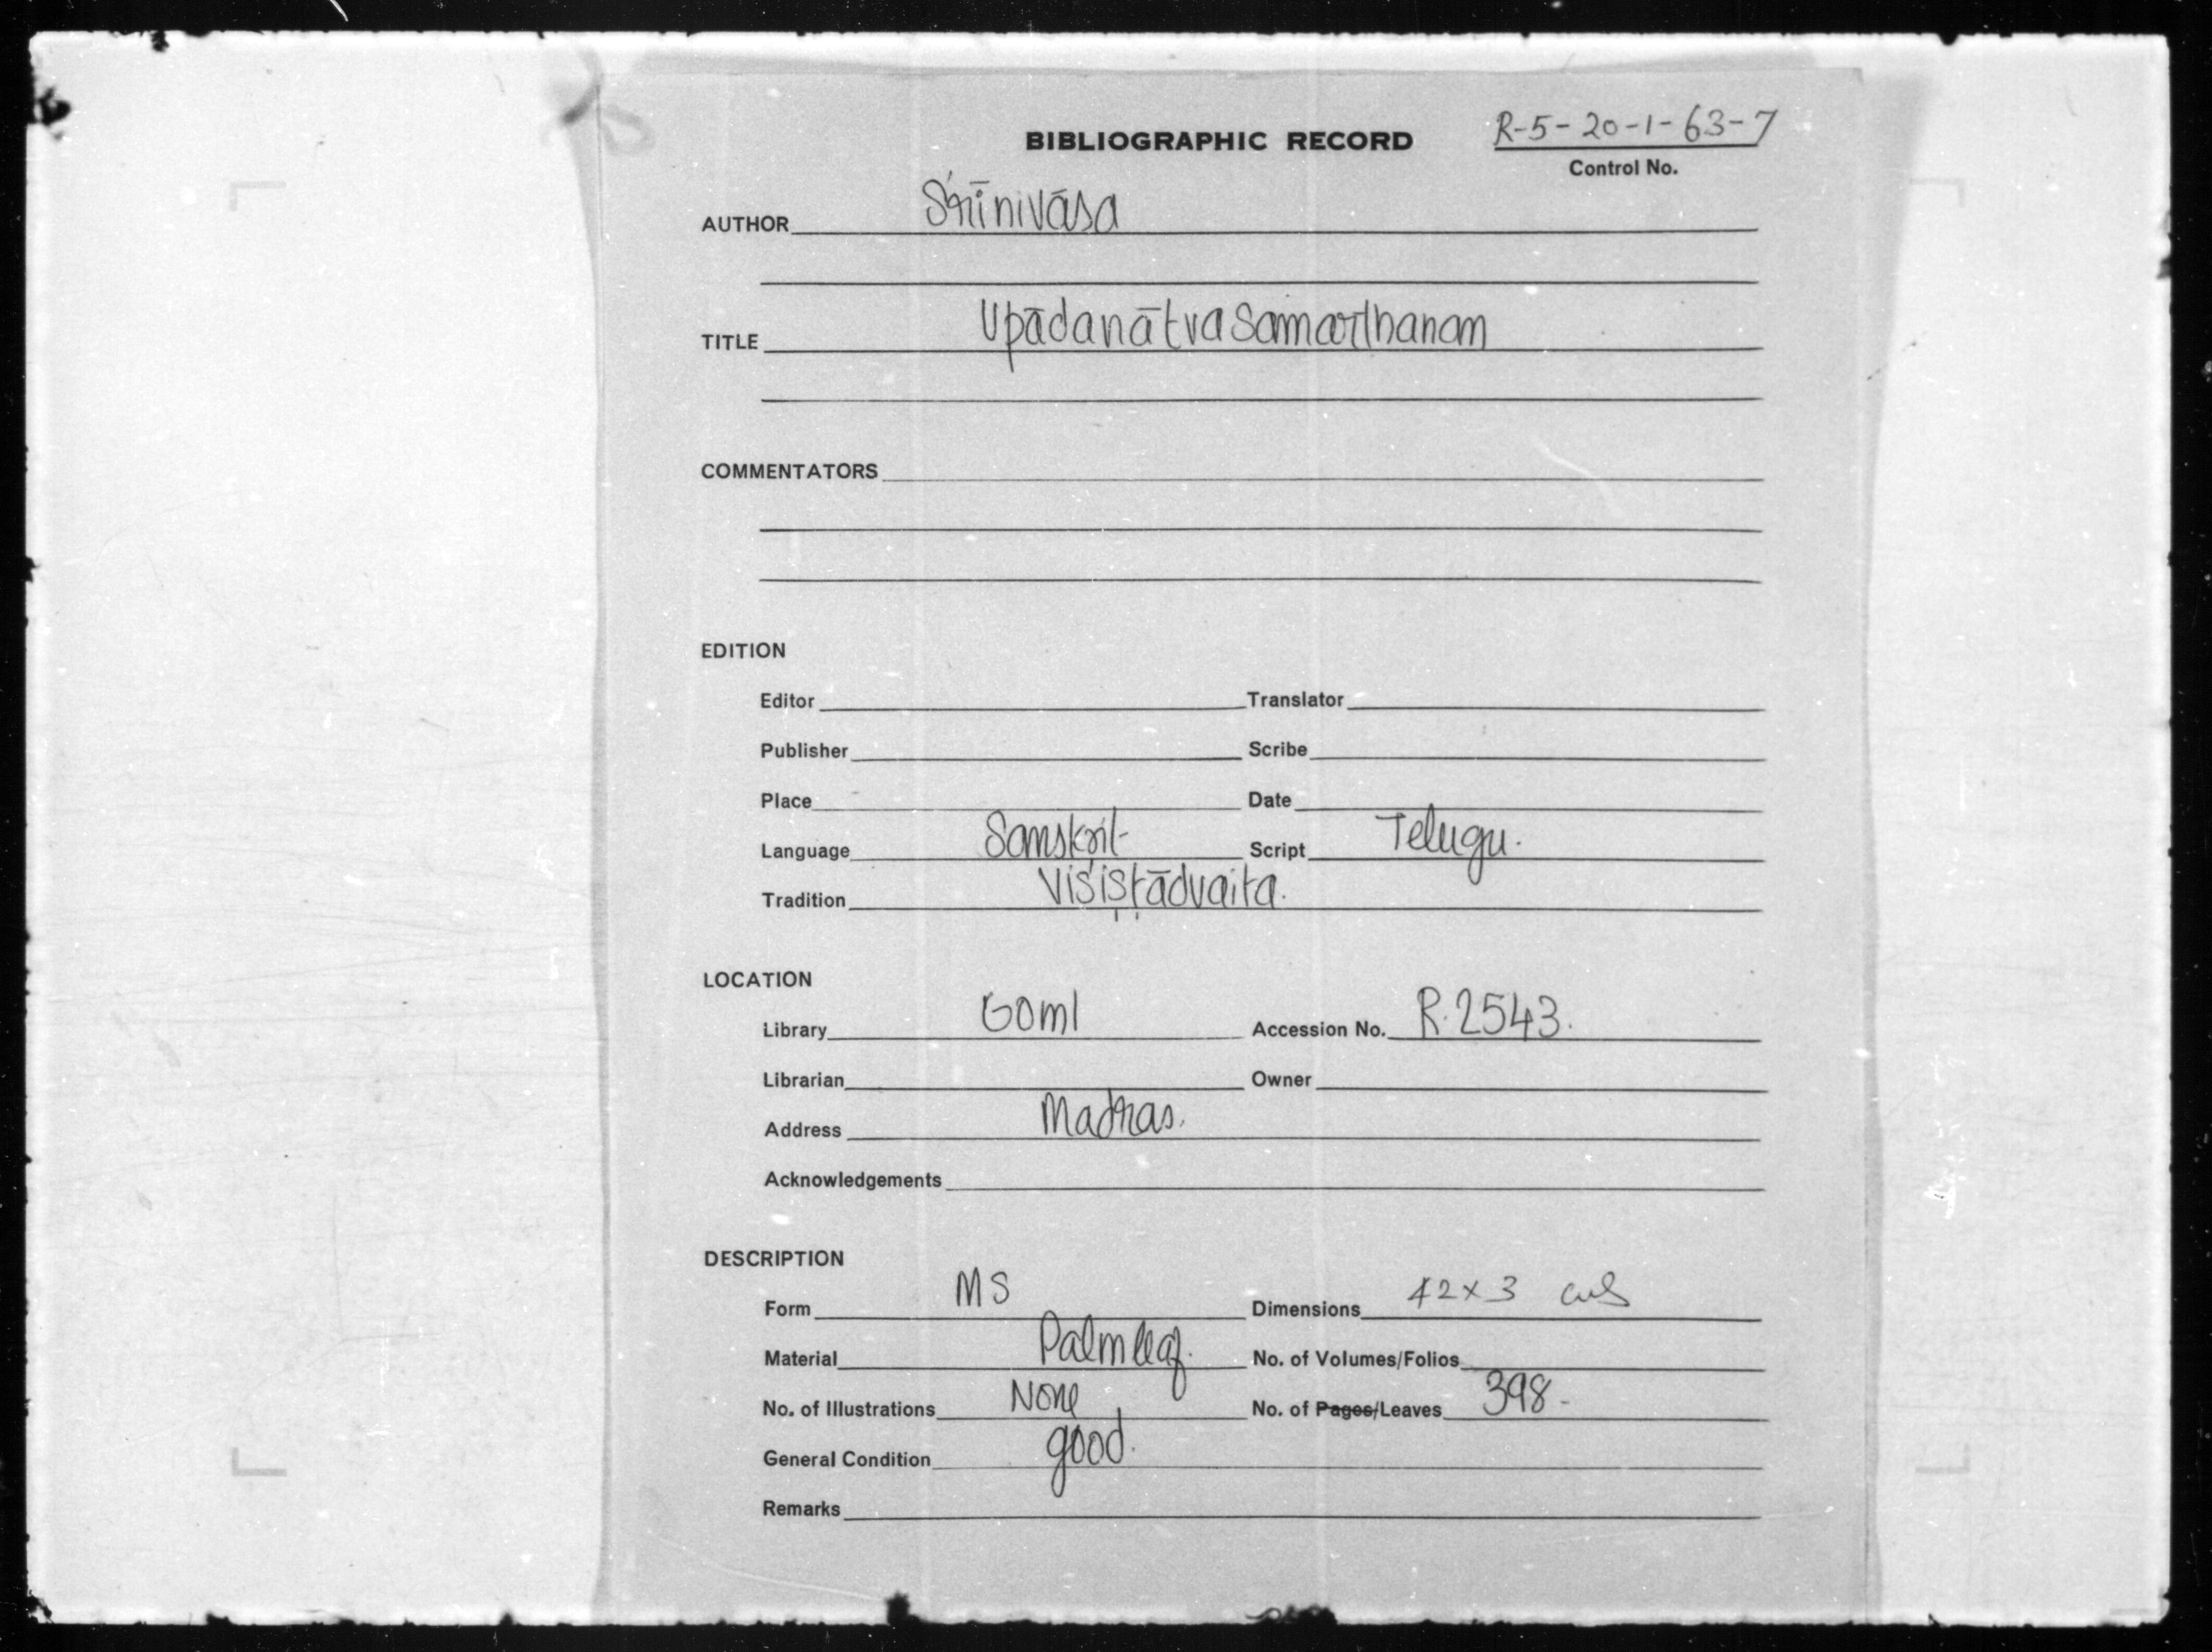 BIBLIOGRAPHIC RECORD R-5-20-1-63-7
Control No.
AUTHOR Śrīnivāsa
TITLE Upādanātvasamarthanam
COMMENTATORS
EDITION
Editor Translator
Publisher Scribe
Place Date
Language Samskrit Script Telugu.
Tradition Viśiṣṭādvaita.
LOCATION
Library Goml Accession No. R.2543.
Librarian Owner
Address Madras.
Acknowledgements
DESCRIPTION
Form MS Dimensions 42x3 cms
Material Palmleaf. No. of Volumes/Folios
No. of Illustrations None No. of Pages/Leaves 398-
General Condition good.
Remarks